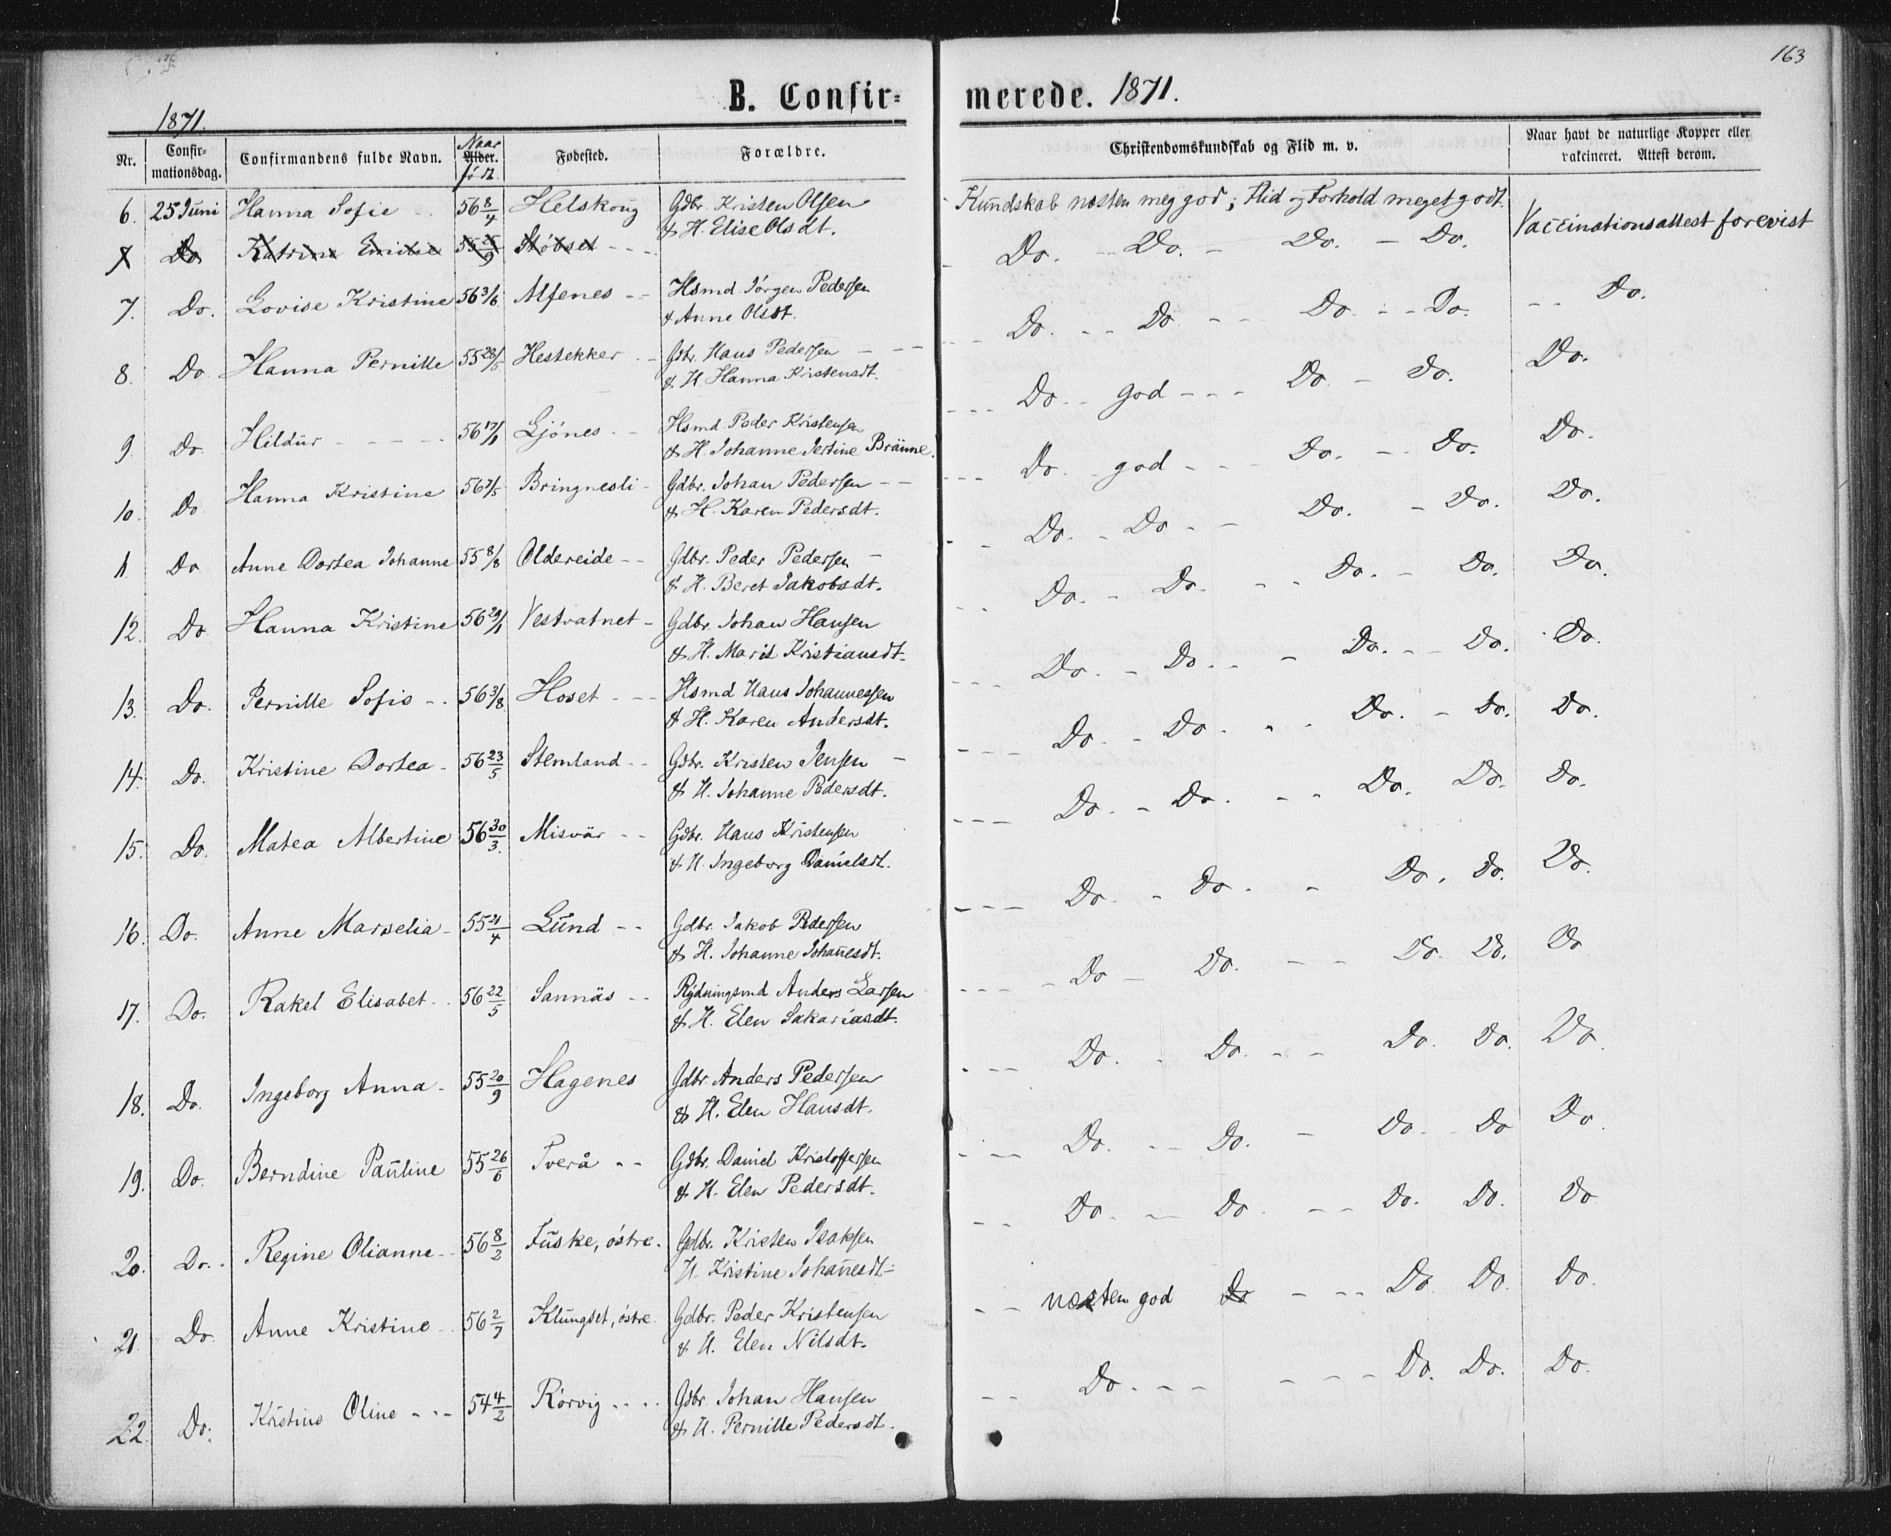 163
B. Confir= merede. 1871.
1871.
Nr. Confir-mationsdag. Confirmandens fulde Navn. Alder. Naar född Fødested. Forældre. Christendomskundskab og Flid m. v. Naar havt de naturlige Kopper eller vakcineret. Attest derom.
6. 25 Juni Hanna Sofie 56 8/4 Helskoug Gdbr. Kristen Olsen Kundskab næsten meg god; Flid og Forhold meget godt. Vaccinationsattest forevist
& H. Elise Olsdt.
7 Do Katrine Emilie 55 25/9 Støbset - - Do. - Do. - Do. - Do.
7. Do. Lovise Kristine 56 3/6 Alfenes - - Hsmd Jørgen Pedersen Do. - - Do - - Do - - Do. - - Do.
& Anne Olsdt.
8. Do Hanna Pernille 55 28/5 Hestekker - Gdbr. Hans Pedersen - - - Do - - god - - - Do - Do. Do.
& H. Hanna Kristensdt.
9. Do. Hildur - - - - 56 17/1 Ljónes - - Hsmd Peder Kristensen Do. god - - - Do. - - Do. Do.
& H. Johanne Jertine Bräune.
10. Do Hanna Kristine 56 7/5 Bringnesli - Gdbr. Johan Pedersen - - Do. - Do - - Do. - Do. Do.
& H. Karen Pedersdt.
11. Do Anne Dortea Johanne 55 8/8 Oldereide - - Gdbr. Peder Pedersen - Do. - Do. - - Do. - Do. Do.
& H. Beret Jakobsdt.
12. Do Hanna Kristine 56 29/1 Vestvatnet - Gdbr. Johan Hansen Do. - Do. - - Do. - - Do. Do.
& H. Marit Kristiansdt.
13. Do. Pernille Sofie - - 56 3/8 Hoset - - - Hsmd Hans Johannessen Do. - Do. - - Do. - Do. Do.
& H. Karen Andersdt.
14. Do. Kristine Dortea - 56 23/5 Stemland - - Gdbr. Kristen Jensen - Do. - Do. - - Do. Do. Do.
& H. Johanne Pedersdt.
15. Do. Matea Albertine 56 30/3. Misvär - - Gdbr. Hans Kristensen Do. - Do. - Do. Do. Do.
& H. Ingeborg Danielsdt.
16. Do. Anne Marselia - 55 21/4 Lund - - Gdbr. Jakob Pedersen Do - Do. - - Do. Do. Do
& H. Johanne Johan̄esdt.
17. Do. Rakel Elisabet - 56 22/5 Sannäs - - Rydningsmd Anders Larsen Do. - Do. - - Do. Do. Do
& H. Elen Sakariasdt.
18. Do. Ingeborg Anna - 55 20/9 Hagenes Gdbr. Anders Pedersen Do. - - Do. - Do. - Do Do
& H. Elen Hansdt.
19. Do. Berndine Pauline 55 26/6 Tverå - - Gdbr. Daniel Kristoffersen Do. - - Do. - - Do. Do. Do
& H. Elen Pedersdt.
20. Do. - Regine Olianne - 56 8/2 Fuske, østre. Gdbr. Kristen Isaksen næsten god Do - - - Do Do. Do.
H. Kristine Johan̄esdt.
21. Do Anne Kristine - 56 2/9 Klungset, østre Gdbr. Peder Kristensen Do. - - - - - Do. Do. Do.
& H. Elen Nilsdt.
22. Do. Kristine Oline - - - 54 4/2 Rørvig - - - Gdbr. Johan Hansen
& H. Pernille Pedersdt.